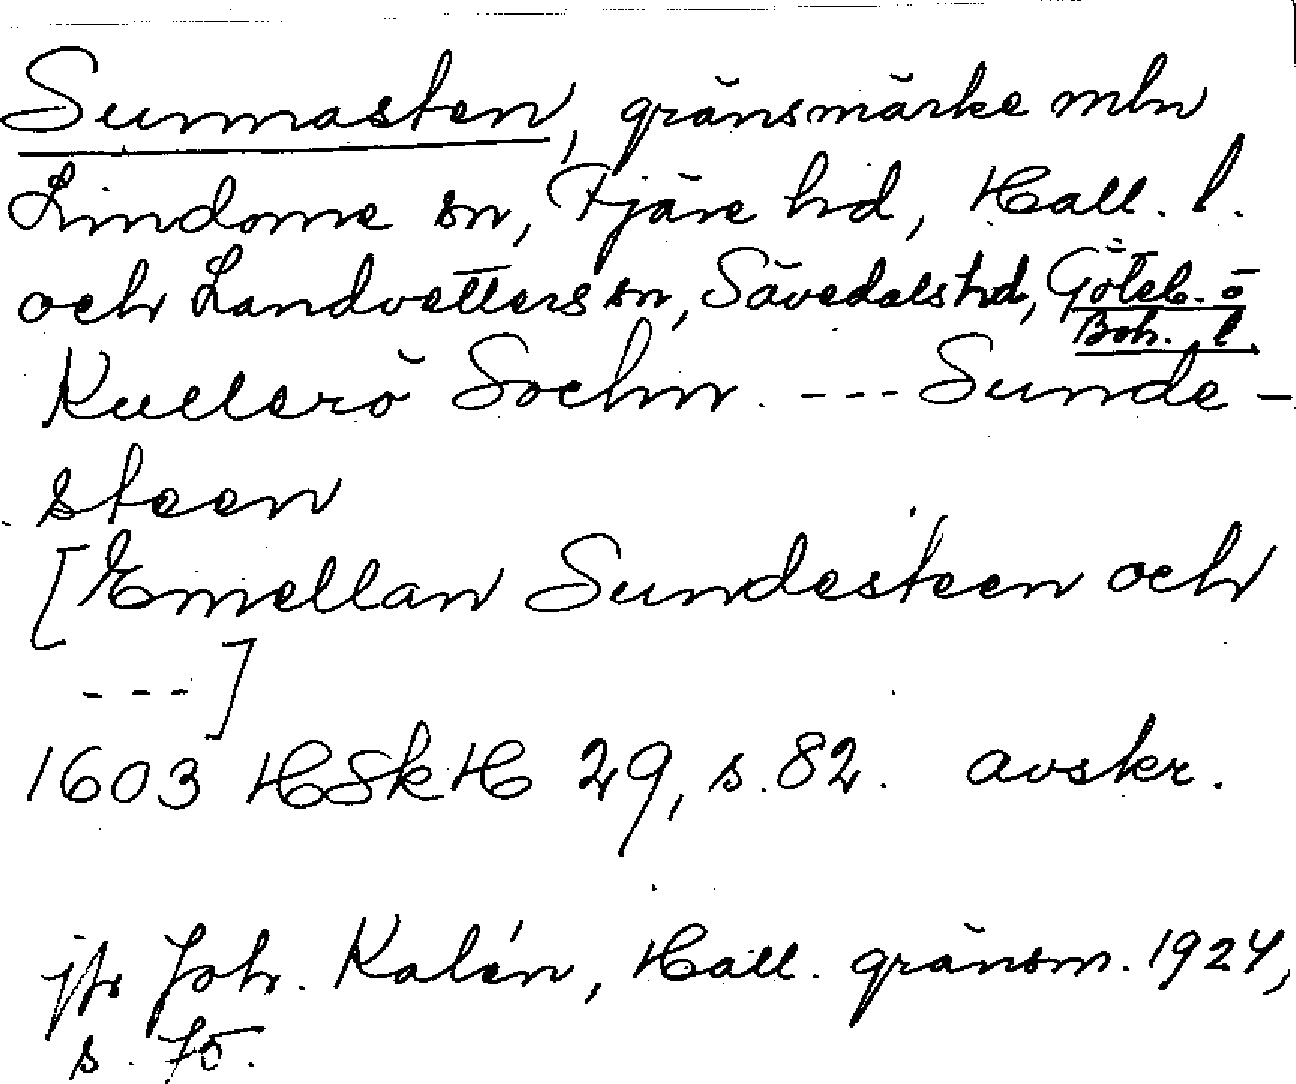 Sunnasten, gränsmärke mln
Lindome sn, Fjäre hd, Hall. l.
och Landvetters sn, Sävedals hd, Göteb. o
Boh. l.
Kullerö Sochn. --- Sunde-
steen
[Emellan Sundesteen och
---]
1603 HSkH 29, s. 82. avskr.
jfr Joh. Kalén, Hall. gränsm. 1924,
s. 75.